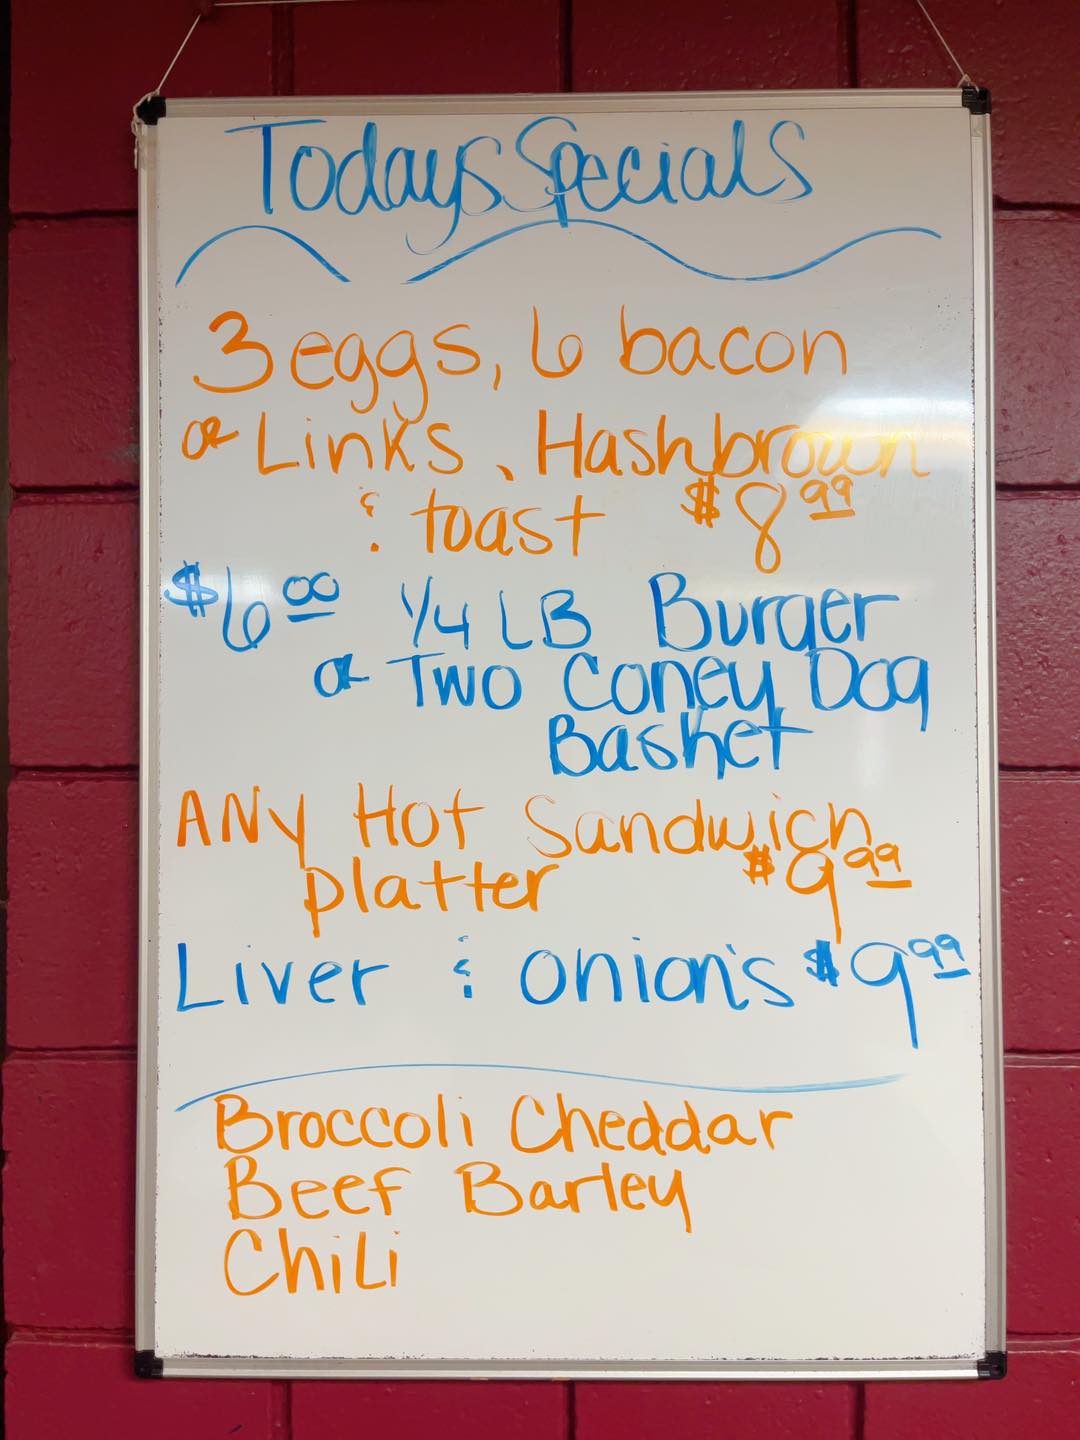 Todays Specials
3 eggs, 6 bacon
or Links, Hashbrown
& toast $8.99
$6.00 1/4 LB Burger
or Two Coney Dog
Basket
ANY Hot Sandwich
platter $9.99
Liver & onion's $9.99
Broccoli Cheddar
Beef Barley
Chili